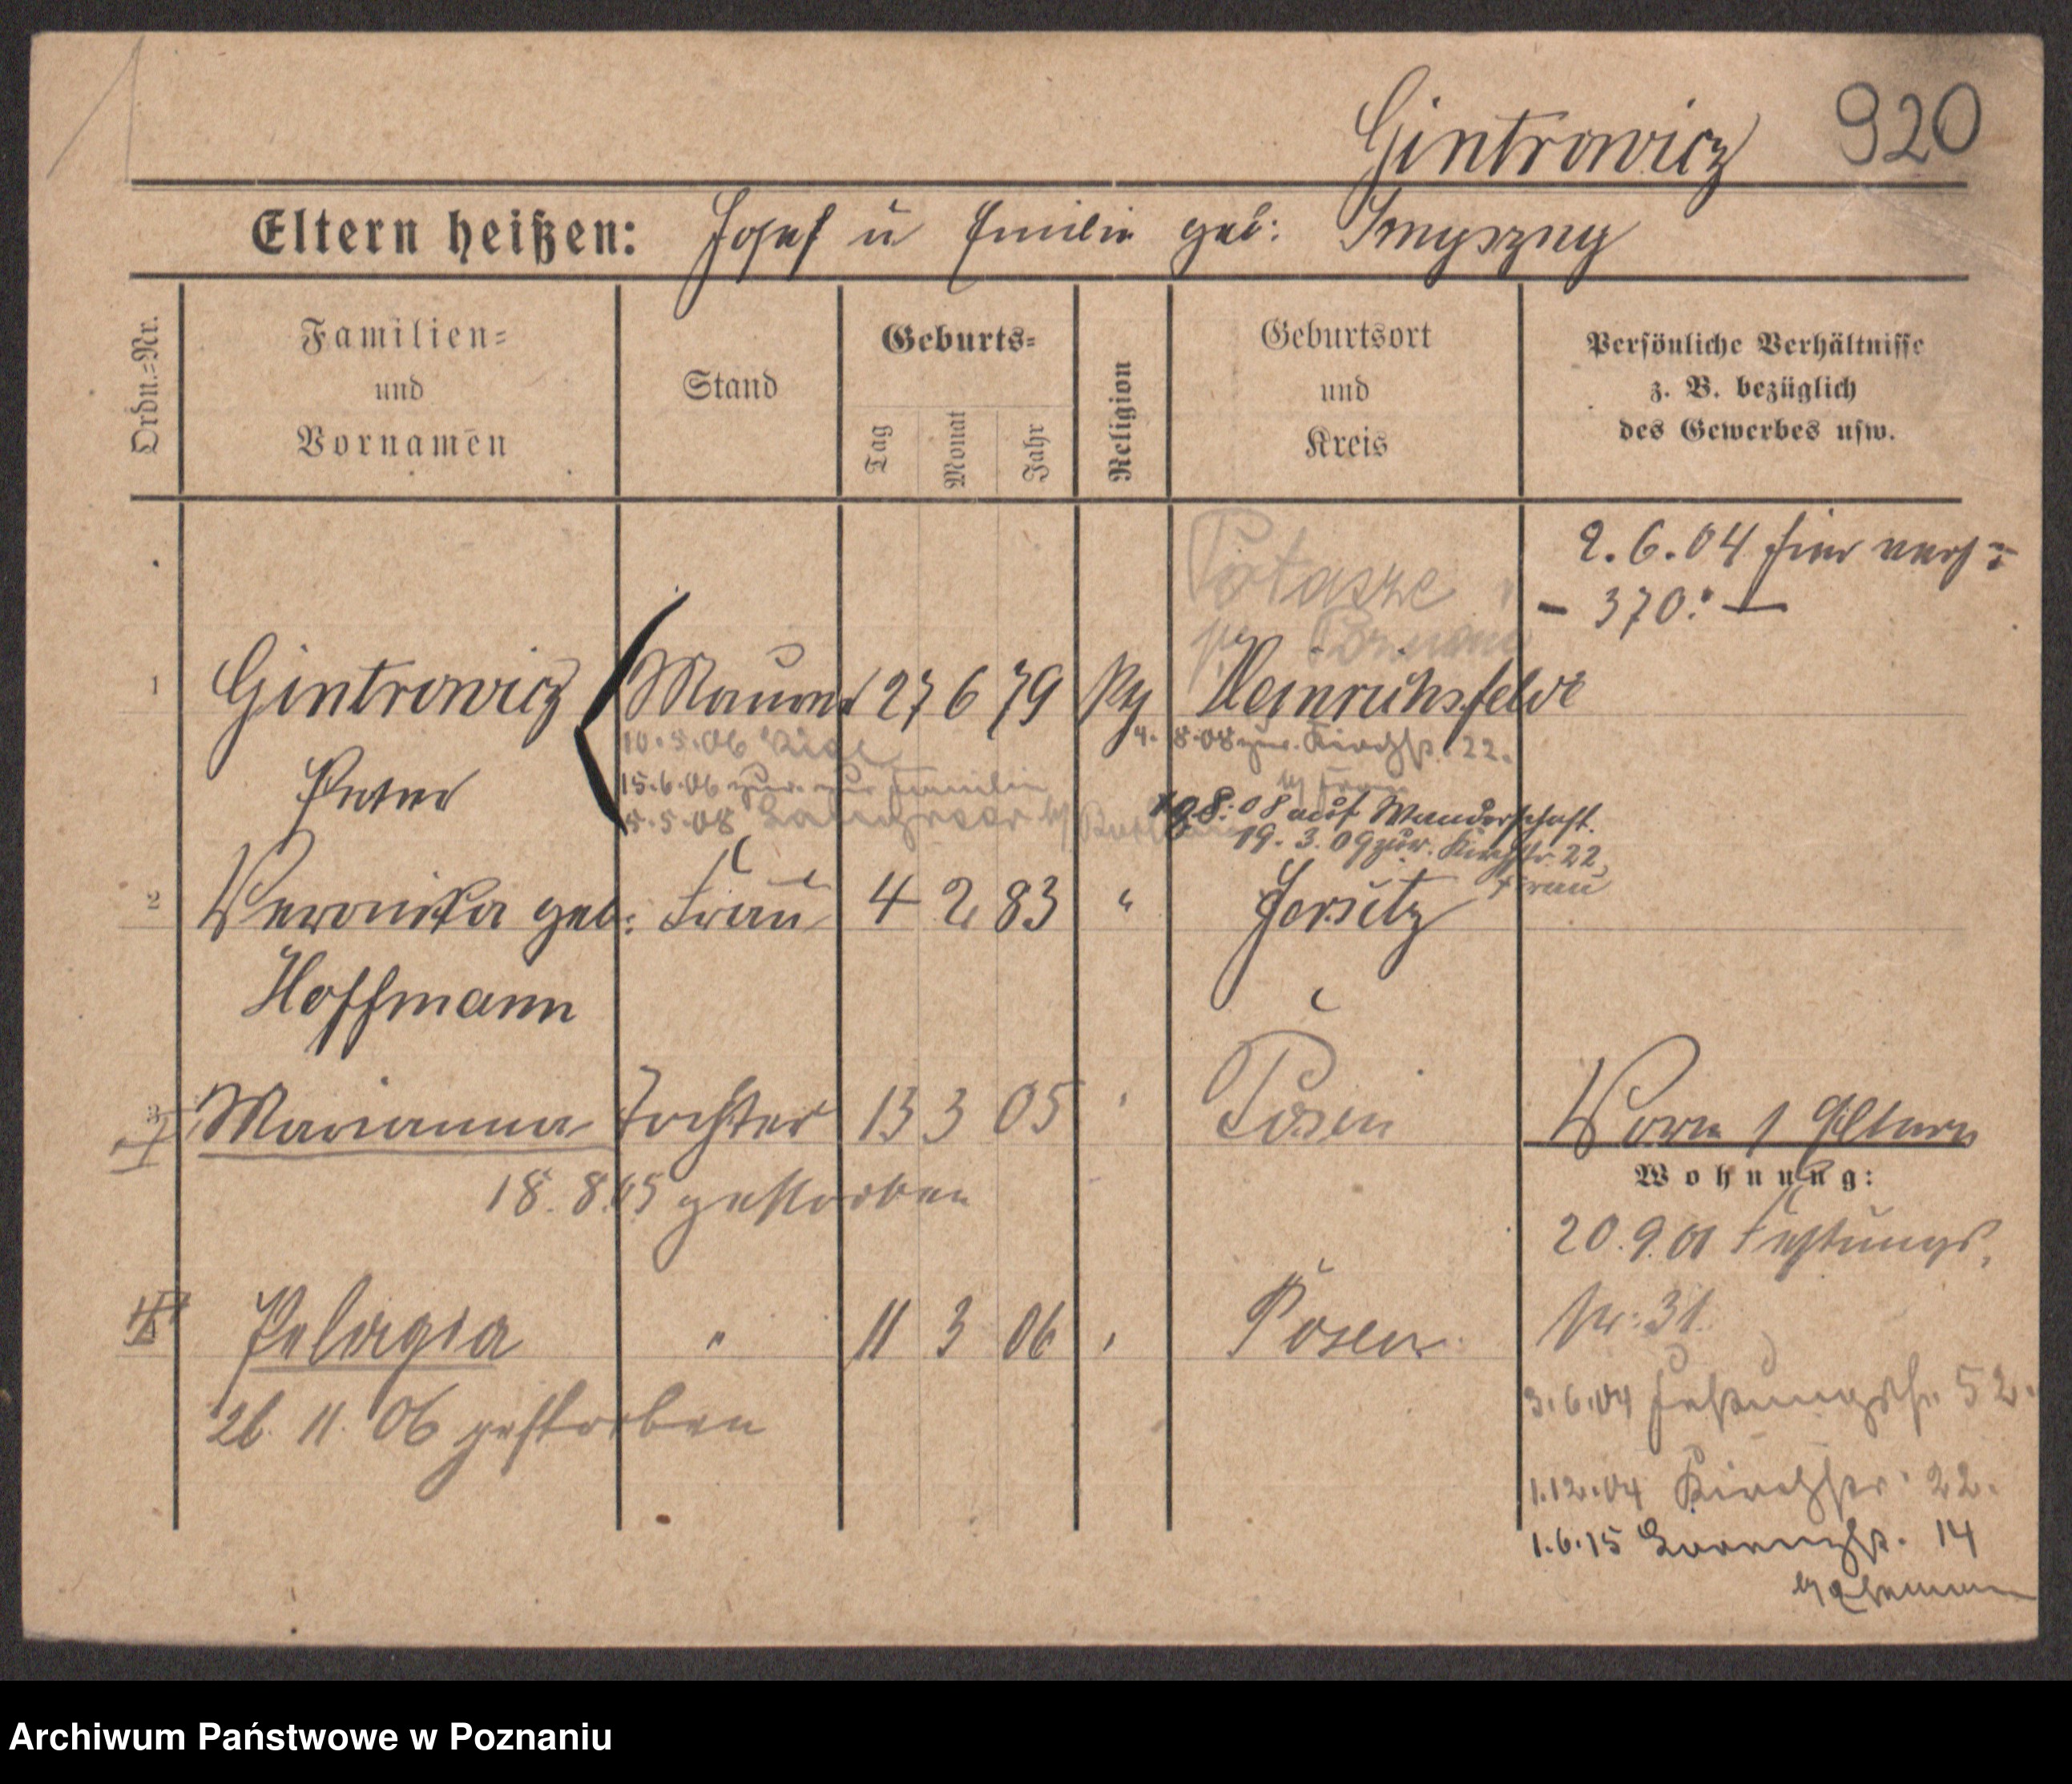 Gintrowicz 920
Eltern heißen: Josef u Emilie geb: Smyszny
Ordn.-Nr.
Familien- und Vornamen
Stand
Geburts-
Tag
Monat
Jahr
Religion
Geburtsort und Kreis
Persönliche Verhältnisse
z. B. bezüglich
des Gewerbes usw.
2.6.04 hier
- 370. -
Potasze
1 Gintrowicz Maurer 27 6 79 Heinrichsfelde
Peter
10.5.06
4.8.08 zur. Kirchstr. 22.
15.6.06 zur. zur Familie
b/ Frau
5.5.08
19.8.08 auf Wanderschaft.
19.3.09 zur. Kirchstr. 22,
Frau
2 Veronika geb: Frau 4 2 83 " Jersitz
Hoffmann
3 Marianna Tochter 13 3 05 " Posen
18.8.05 gestorben
Vorn 1 Eltern
Wohnung:
20.9.01 Festungs.
Nr. 31.
4 Pelagia " 11 3 06 " Posen
26.11.06 gestorben
3.6.04 Festungsstr. 52.
1.12.04 Kirchstr. 22.
1.6.15 14
Archiwum Państwowe w Poznaniu